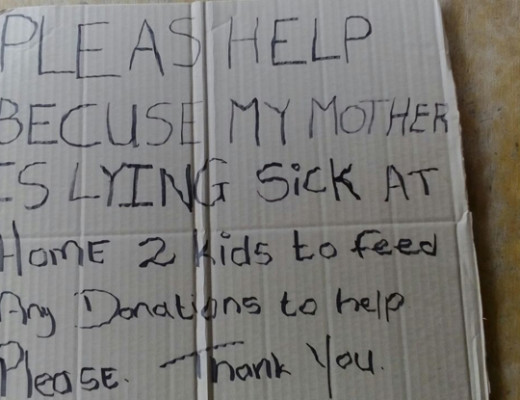 PLEAS HELP
BECUSE MY MOTHER
IS LYING SICK AT
HOME 2 kids to feed
Any Donations to help
Please. Thank You.